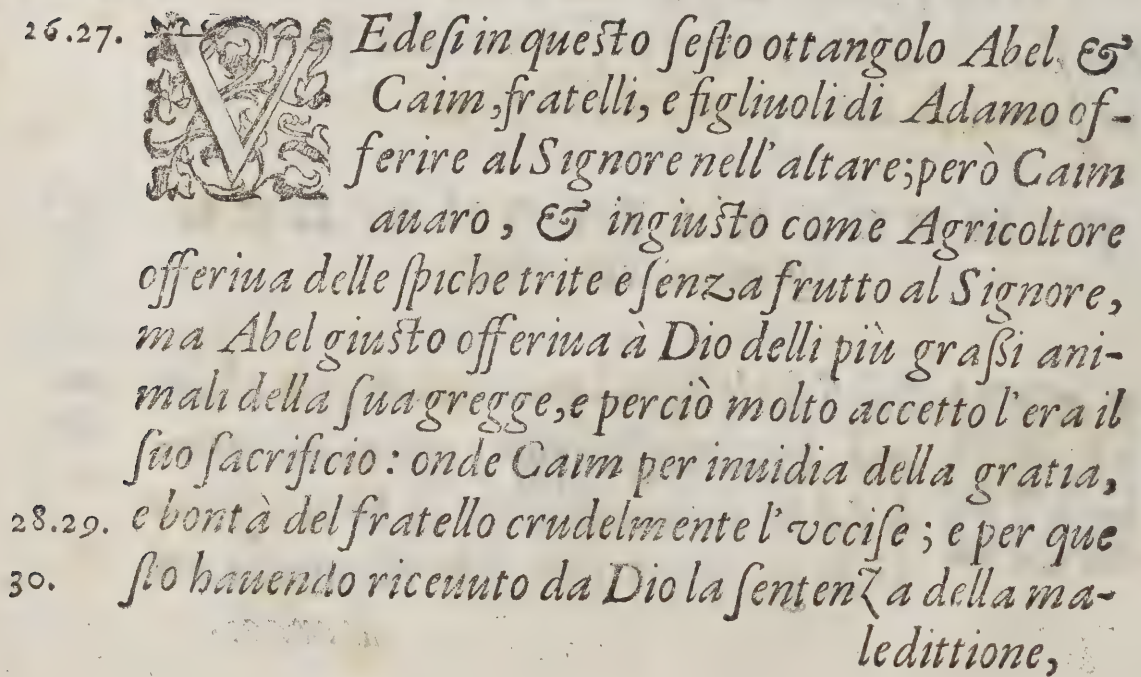 26.27. VEdesi in questo sesto ottangolo Abel, &
Caim, fratelli, e figliuoli di Adamo of-
ferire al Signore nell'altare; però Caim
auaro, & ingiusto come Agricoltore
offeriua delle spiche trite e senza frutto al Signore,
ma Abel giusto offeriua à Dio delli più grassi ani-
mali della sua gregge, e perciò molto accetto l'era il
suo sacrificio: onde Caim per inuidia della gratia,
28.29. e bontà del fratello crudelmente l'vccise; e per que
30. sto hauendo riceuuto da Dio la sentenza della ma-
ledittione,